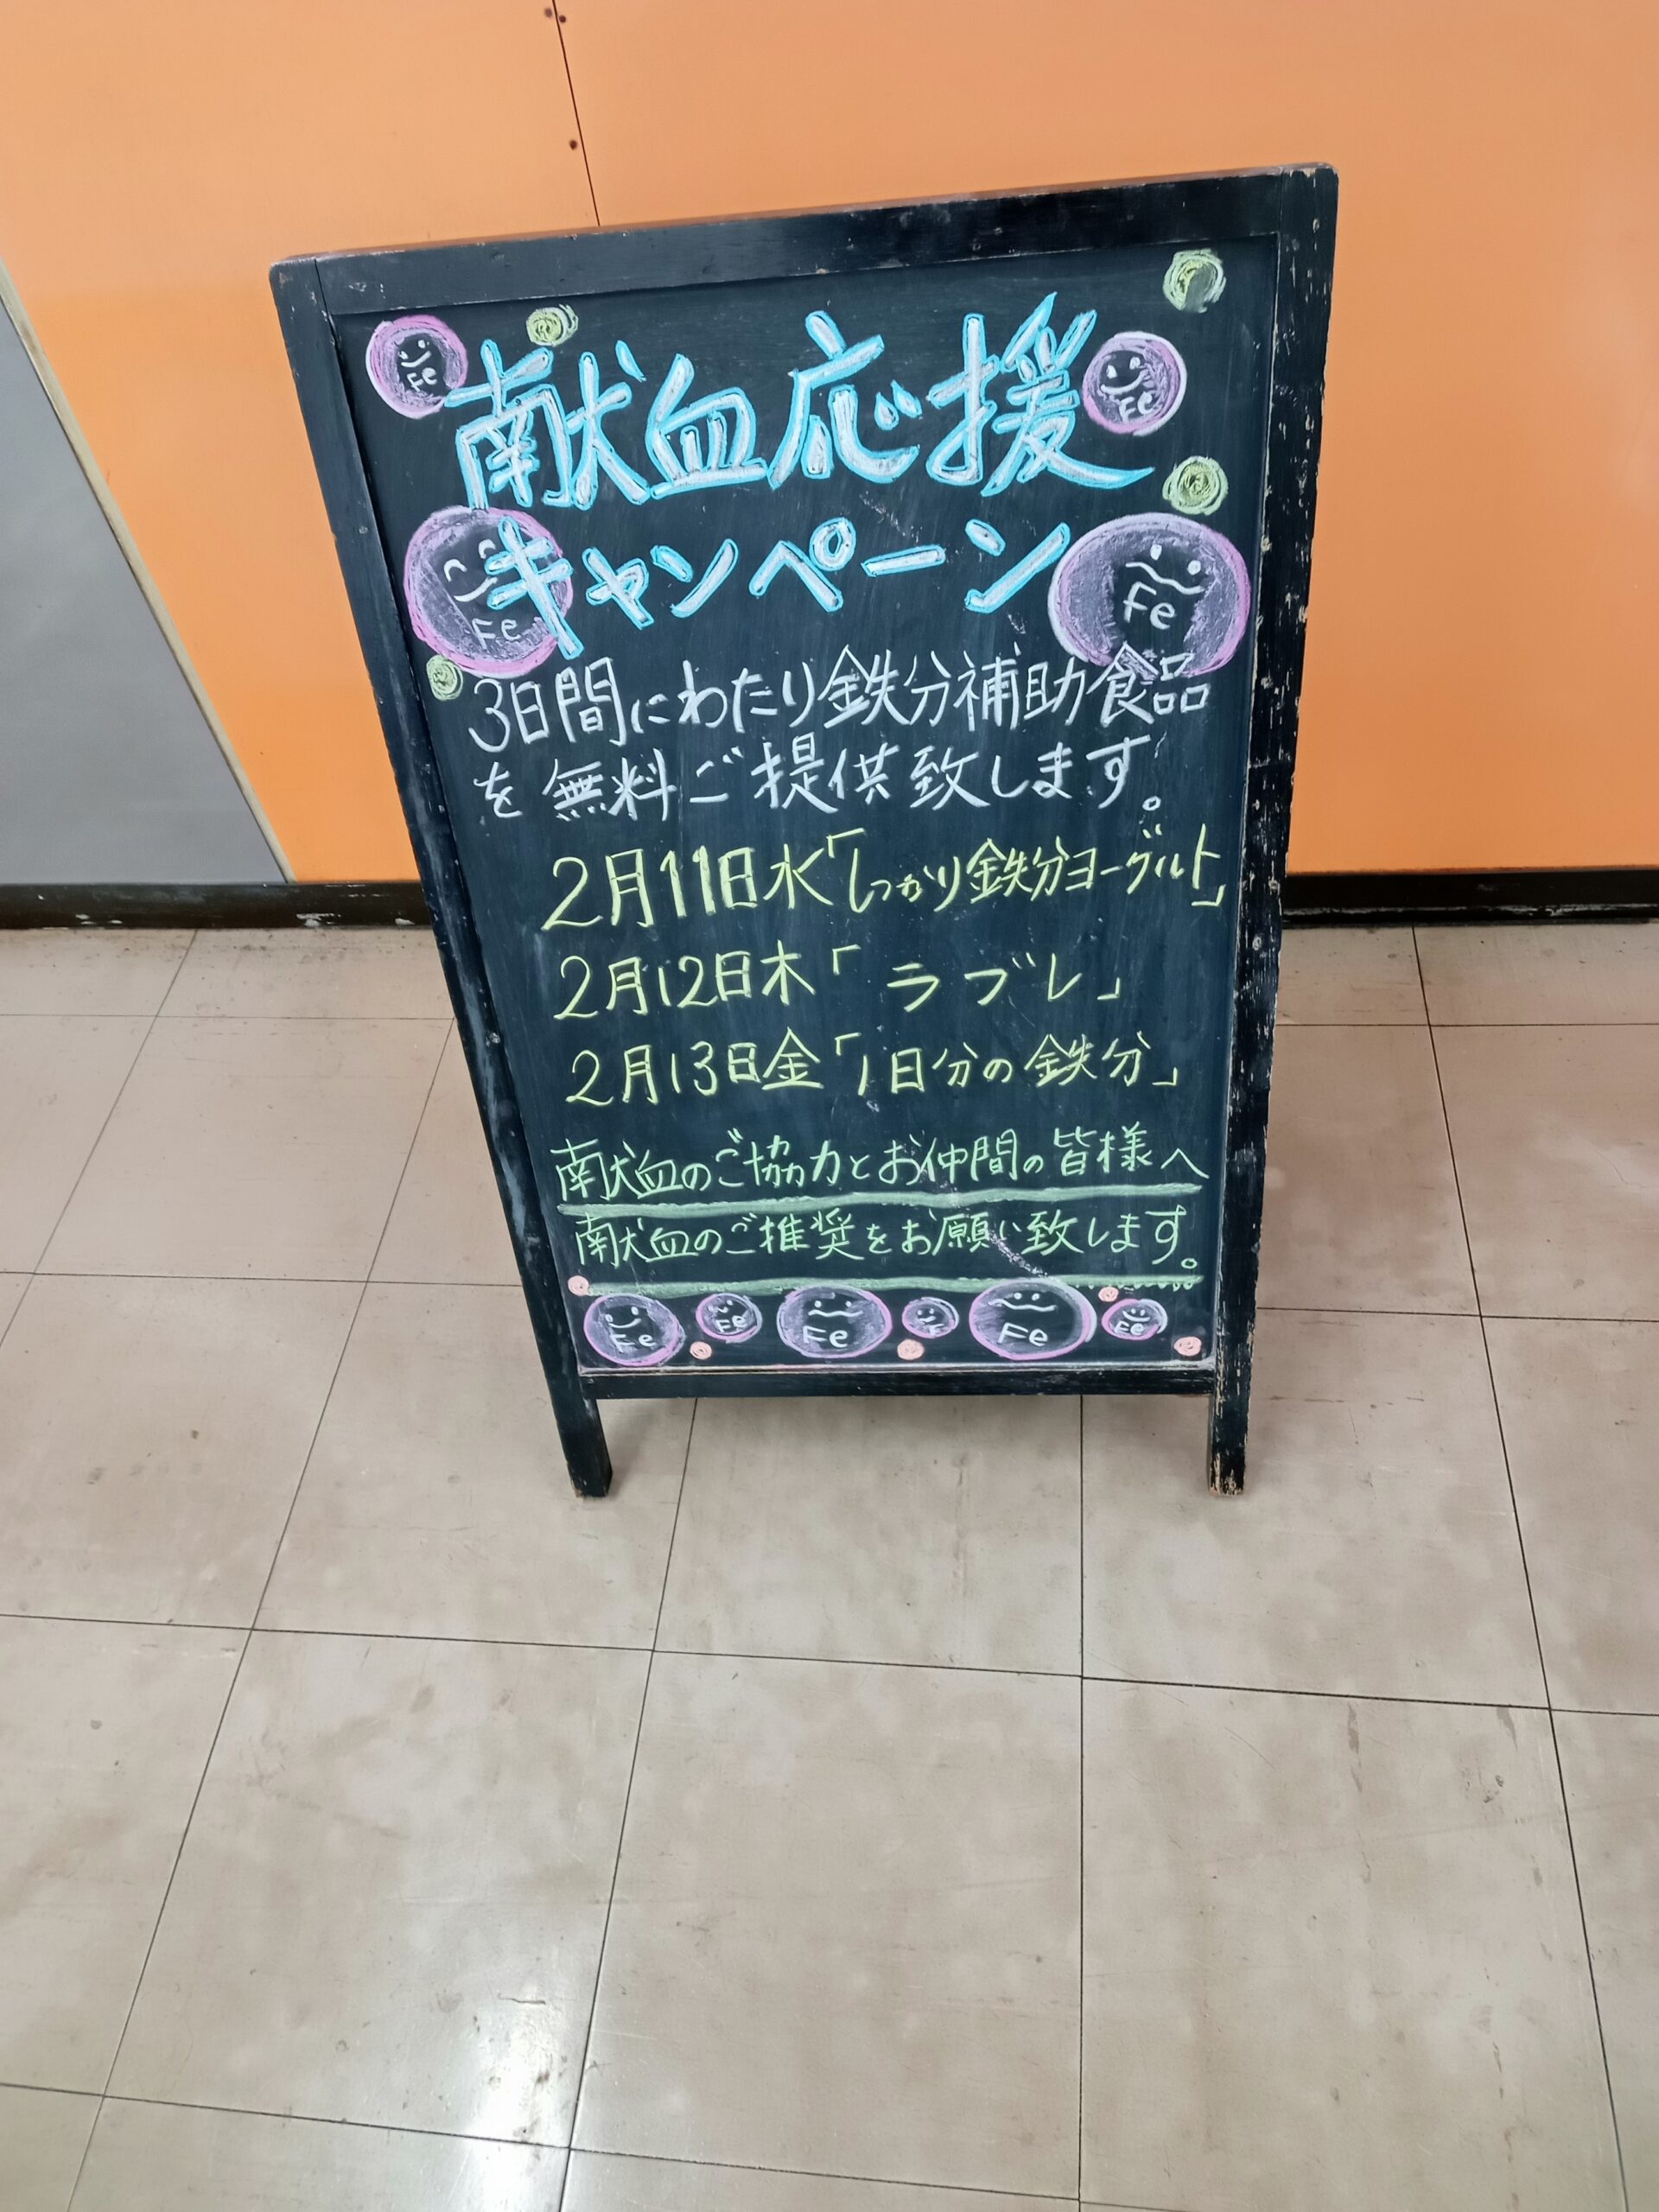 献血応援
キャンペーン
3日間にわたり鉄分補助食品
を無料ご提供致します。
2月11日水「しっかり鉄分ヨーグルト」
2月12日木「ラブレ」
2月13日金「1日分の鉄分」
献血のご協力とお仲間の皆様へ
献血のご推奨をお願い致します。
Fe
Fe
Fe
Fe
Fe
Fe
Fe
Fe
Fe
Fe